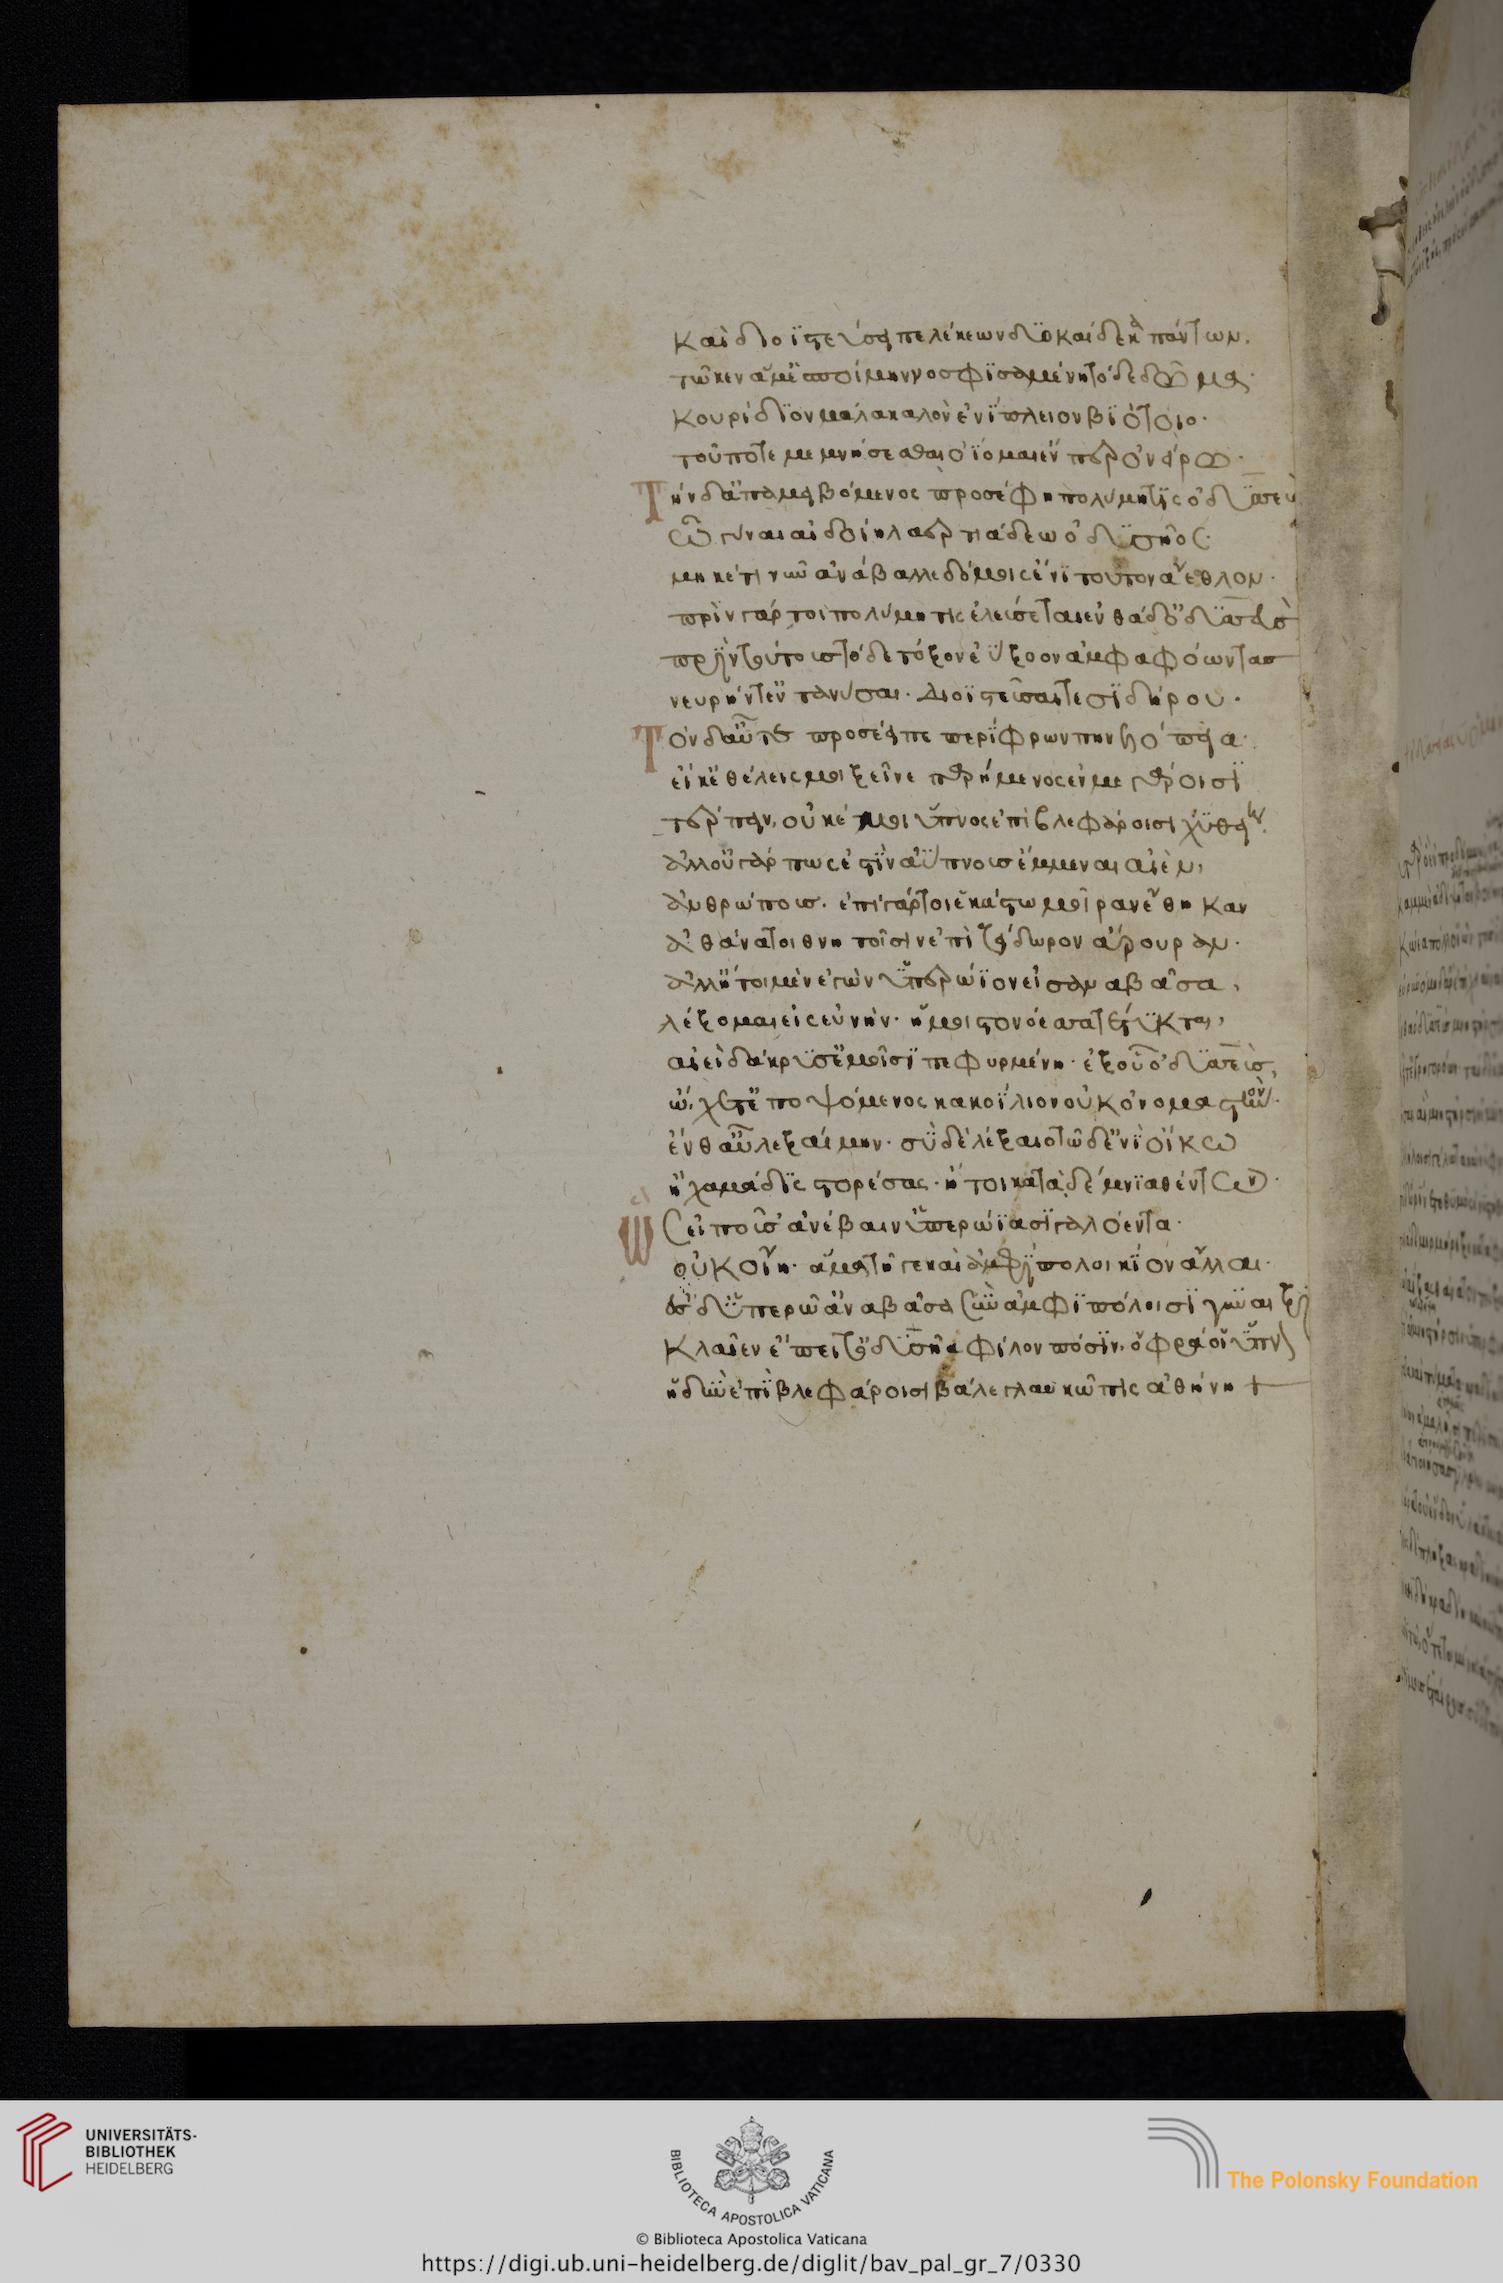 καὶ διοϊστεύσει πελέκεων δϋοκαίδεκα πάντων.
τῶ κεν ἅμ' ἑσποίμην νοσφισαμένη τόδε δῶμα·
κουρίδιον μάλα καλὸν ἐνίπλειον βιότοιο·
τοῦ ποτε μεμνήσεσθαι ὀΐομαι ἔν περ ὀνείρω·
Τὴν δ' ἀπαμειβόμενος προσέφη πολύμητις ὀδυσσεύς
ὦ γύναι αἰδοίη λαερτιάδεω ὀδυσῆος·
μηκέτι νῦν ἀνάβαλλε δόμοις ἔνι τοῦτον ἄεθλον·
πρὶν γάρ τοι πολύμητις ἐλεύσεται ἐνθάδ' ὀδυσσεὺς
πρὶν τούτους τόδε τόξον ἐΰξοον ἀμφαφόωντας
νευρήν τ' ἐντανύσαι· διοϊστεῦσαί τε σιδήρου·
Τὸν δ' αὖτε προσέειπε περίφρων πηνελόπεια·
εἴ κ' ἐθέλεις μοι ξεῖνε παρήμενος ἐν μεγάροισι
τέρπειν, οὔ κέ μοι ὕπνος ἐπὶ βλεφάροισι χυθείη.
ἀλλ' οὐ γάρ πως ἔστιν ἀΰπνους ἔμμεναι αἰὲν,
ἀνθρώπους· ἐπὶ γάρ τοι ἑκάστω μοῖραν ἔθηκαν
ἀθάνατοι θνητοῖσιν ἐπὶ ζείδωρον ἄρουραν·
ἀλλ' ἤτοι μὲν ἐγὼν ὑπερώϊον εἰσαναβᾶσα,
λέξομαι εἰς εὐνήν· ἥ μοι στονόεσσα τέτυκται,
αἰεὶ δάκρυσ' ἐμοῖσι πεφυρμένη· ἐξ οὗ ὀδυσσεὺς,
ὤχετ' ἐποψόμενος κακοΐλιον οὐκ ὀνομαστήν·
ἔνθα λεξαίμην· σὺ δὲ λέξαιο τῶδ' ἐνὶ οἴκω
ἢ χαμάδις στορέσας· ἤ τοι κατὰ δέμνια θέντων·
Ὣς εἰποῦσ' ἀνέβαιν' ὑπερώϊα σιγαλόεντα·
οὐκ οἴη· ἅμα τῆγε καὶ ἀμφίπολοι κίον ἄλλαι·
ἐς δ' ὑπερῶ' ἀναβᾶσα σὺν ἀμφιπόλοισι γυναιξὶ
κλαῖεν ἔπειτ' ὀδυσῆα φίλον πόσιν· ὄφρά οἱ ὕπνον
ἡδὺν ἐπὶ βλεφάροισι βάλε γλαυκῶπις ἀθήνη +
UNIVERSITÄTS-
BIBLIOTHEK
HEIDELBERG
BIBLIOTECA APOSTOLICA VATICANA
The Polonsky Foundation
© Biblioteca Apostolica Vaticana
https://digi.ub.uni-heidelberg.de/diglit/bav_pal_gr_7/0330